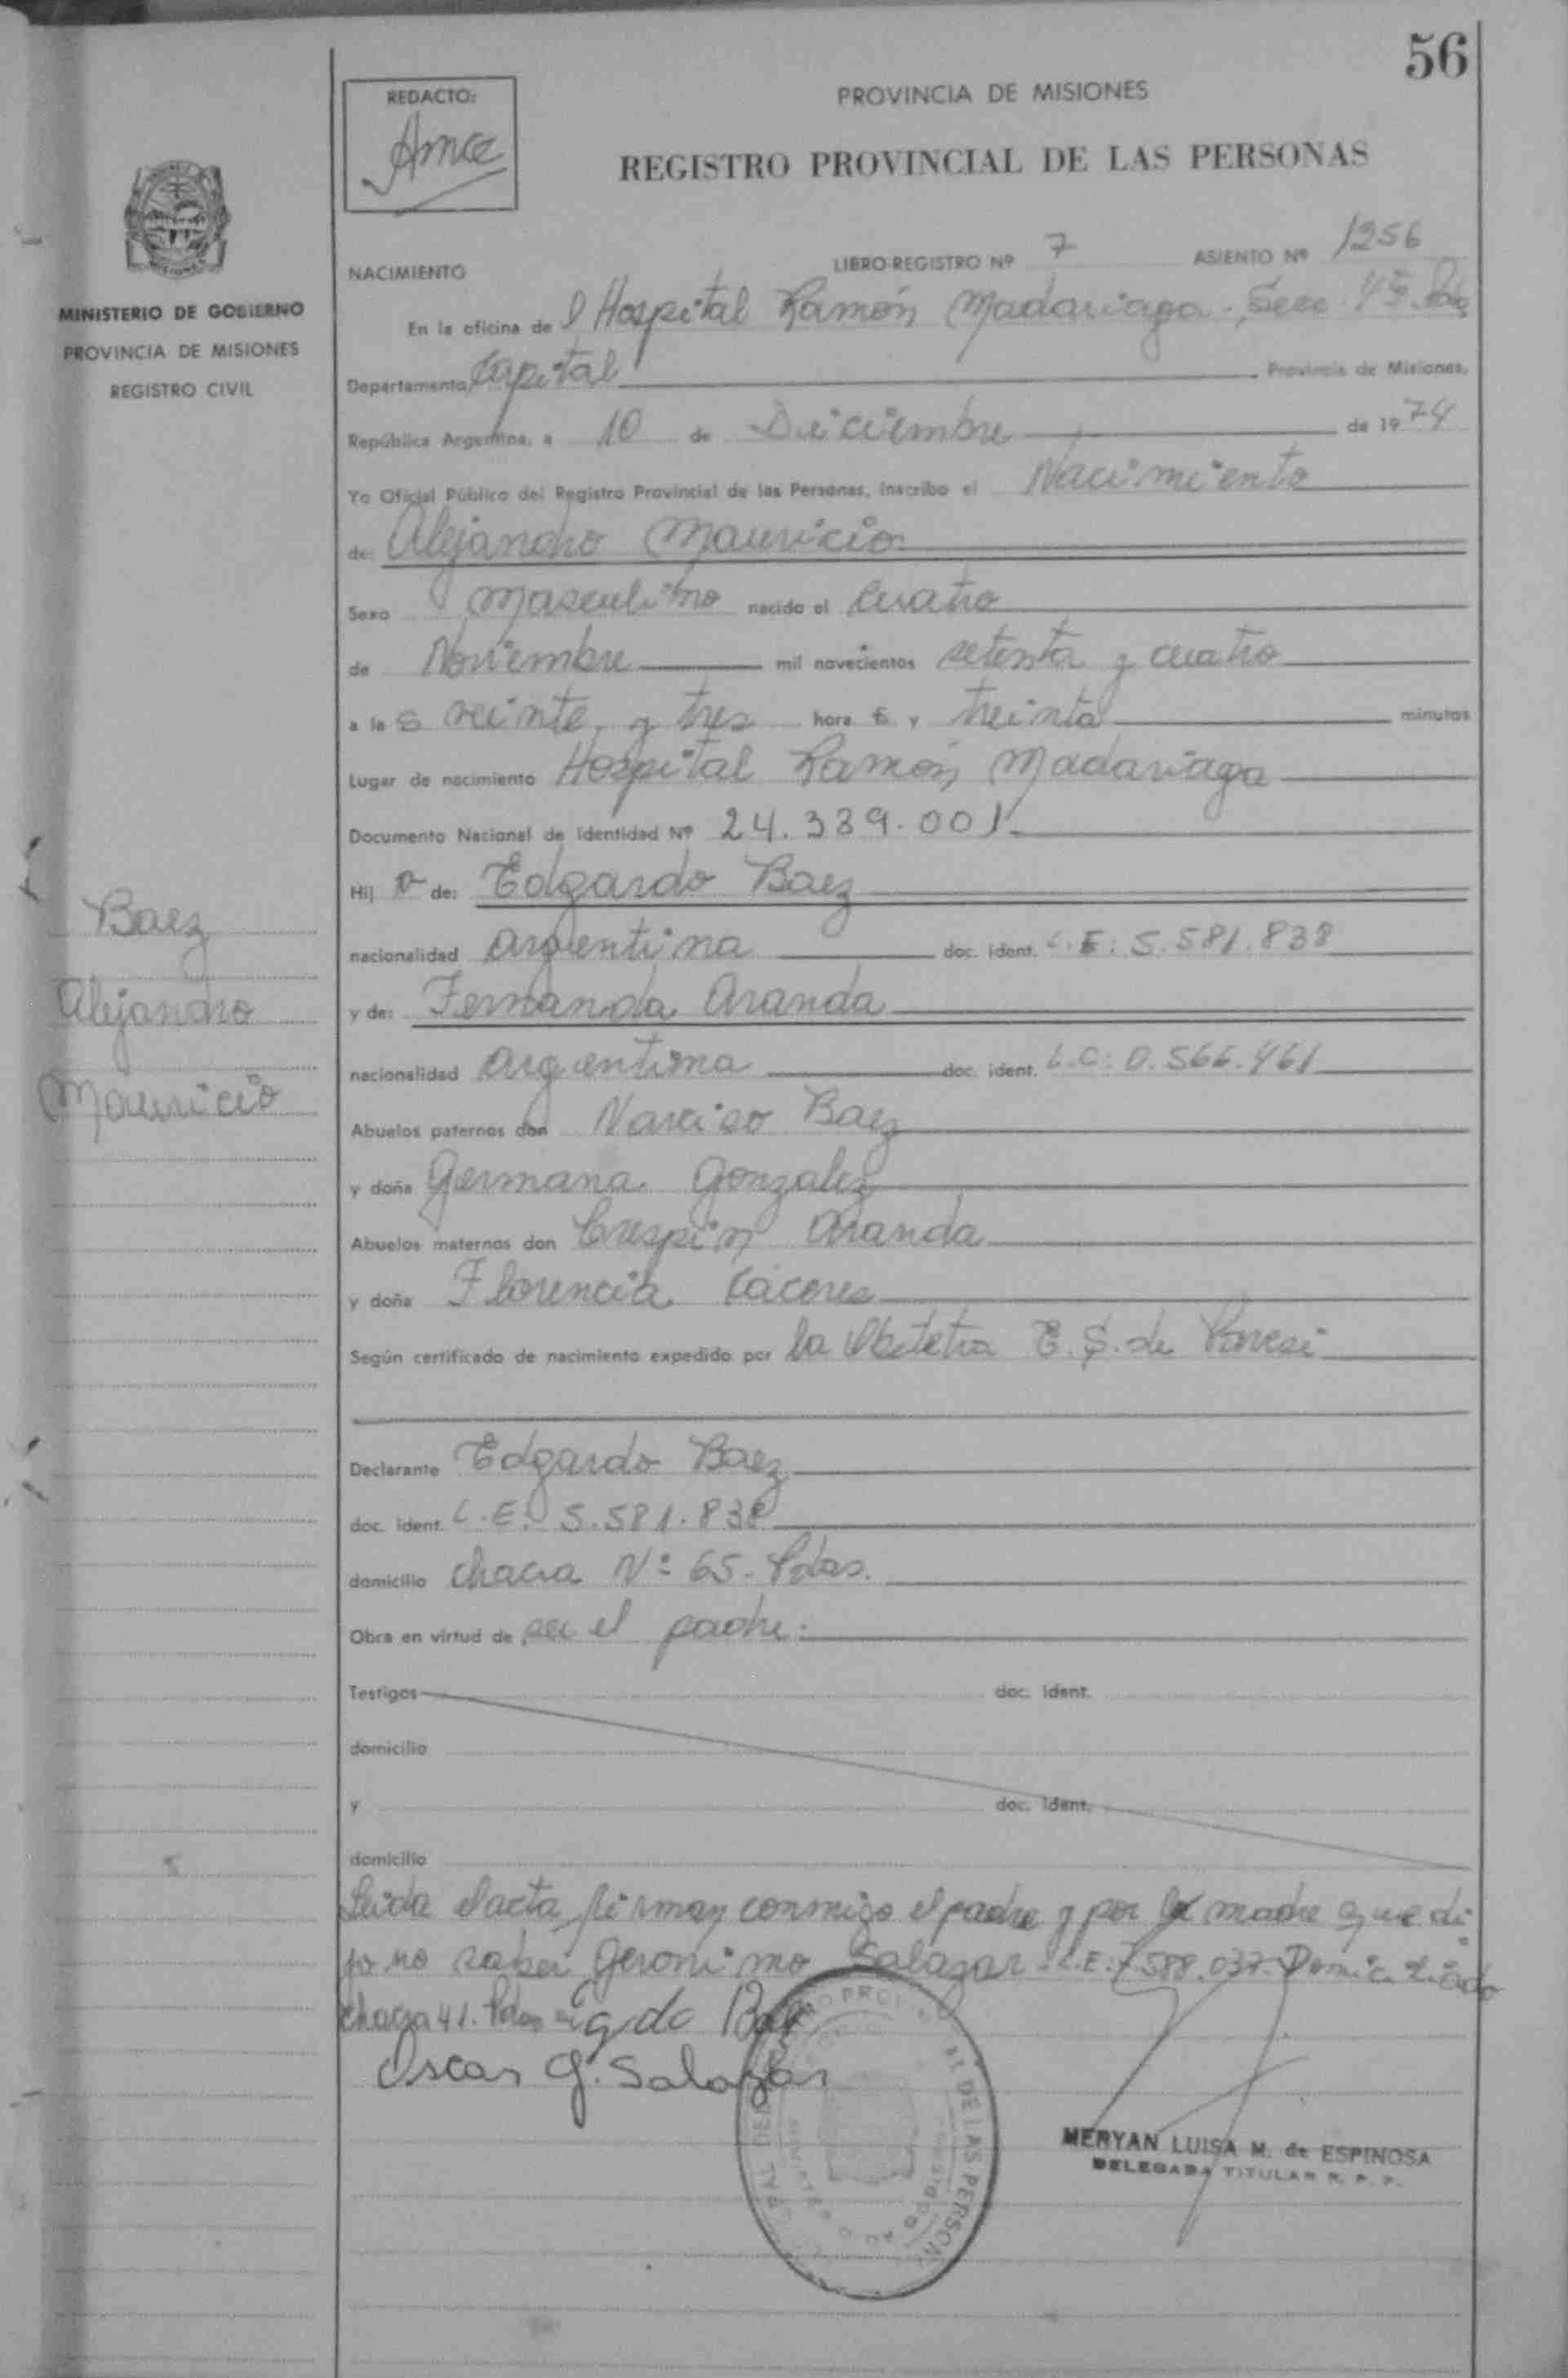 56
REDACTO:
PROVINCIA DE MISIONES
REGISTRO PROVINCIAL DE LAS PERSONAS
LIBRO-REGISTRO Nº 7 ASIENTO Nº 1256
NACIMIENTO
MINISTERIO DE GOBIERNO
PROVINCIA DE MISIONES
REGISTRO CIVIL
En la oficina de l Hospital Ramón Madariaga - Secc. 4ta. Pdas
Departamento Capital Provincia de Misiones,
República Argentina, a 10 de Diciembre de 1974
Yo Oficial Público del Registro Provincial de las Personas, inscribo el Nacimiento
de: Alejandro Mauricio
Sexo Masculino nacido el Cuatro
de Noviembre mil novecientos setenta y cuatro
a las veinte y tres horas y treinta minutos
Lugar de nacimiento Hospital Ramón Madariaga
Documento Nacional de Identidad Nº 24.339.001
Hijo de: Edgardo Baez
nacionalidad argentina doc. ident. L.E: 5.581.838
y de: Fernanda Aranda
nacionalidad argentina doc. ident. L.C: 0.566.461
Abuelos paternos don Narciso Baez
y doña Germana Gonzalez
Abuelos maternos don Crespin Aranda
y doña Florencia Caceres
Según certificado de nacimiento expedido por la Obstetra E. S. de
Declarante Edgardo Baez
doc. ident. L.E: 5.581.838
domicilio chacra Nº 65 - Pdas.
Obra en virtud de ser el padre.
Testigos doc. ident.
domicilio
y doc. ident.
domicilio
Leida el acta firman conmigo el padre y por la madre que di
jo no saber Geronimo Salazar L.E: 7.588.037 Domiciliado
chacra 41. Pdas Egdo Baez
Oscar G. Salazar
MERYAN LUISA M. de ESPINOSA
DELEGADA TITULAR R. P. P.
Baez
Alejandro
Mauricio